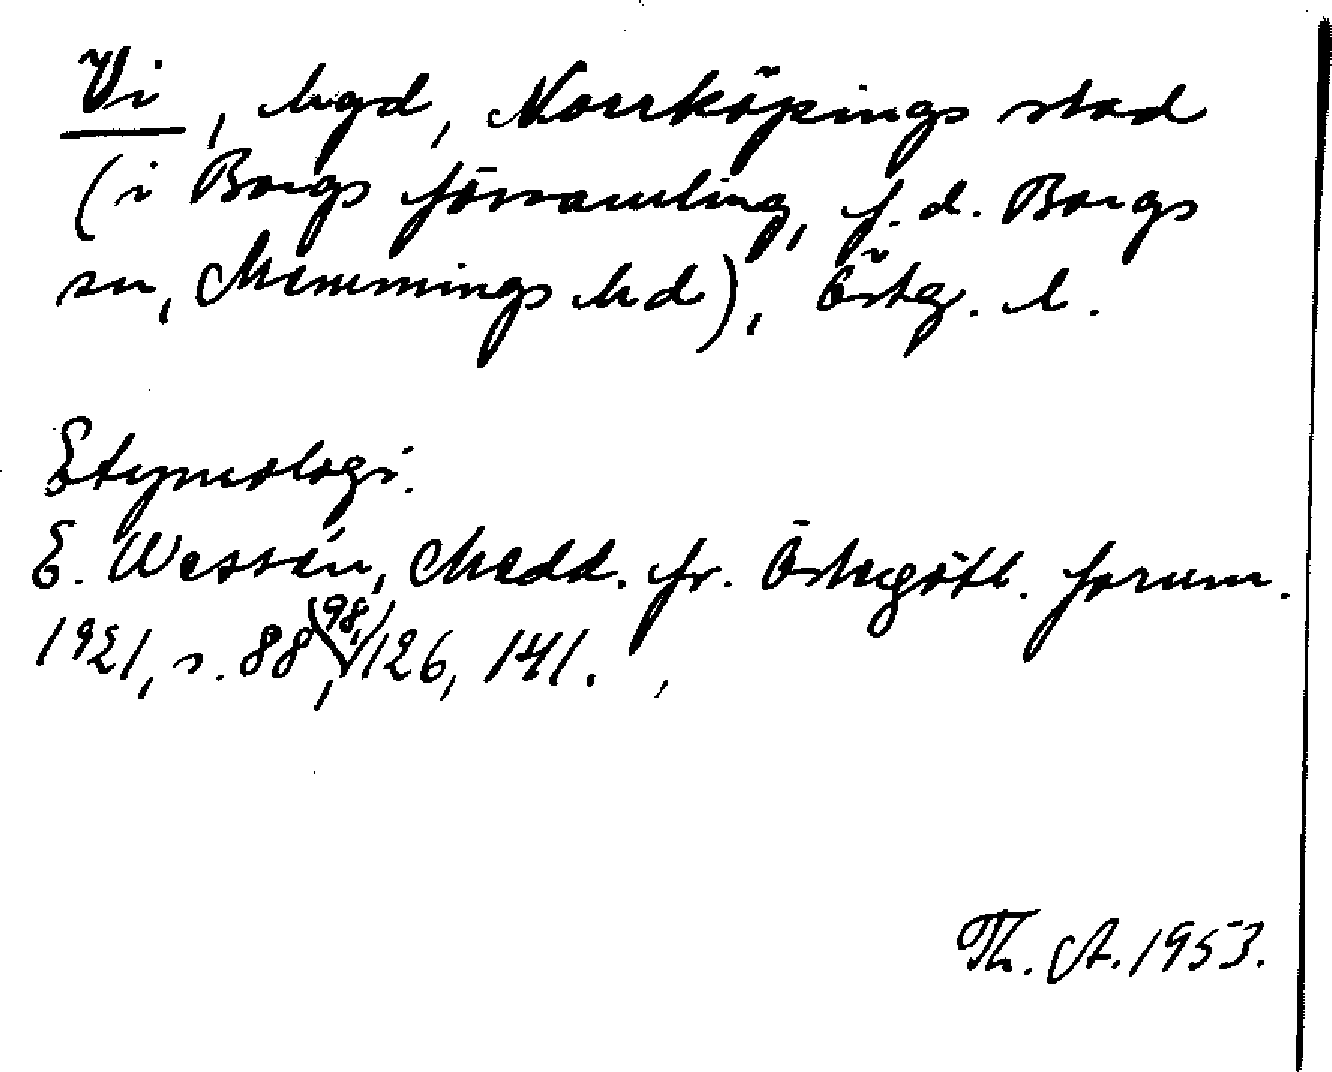 Vi, hgd, Norrköpings stad
(i Borgs församling, f.d. Borgs
sn, Memmings hd), Östg. l.
Etymologi.
E. Wessén, Medd. fr. Östergötl. fornm.
1921, s. 88, 98, 126, 141.
Th. A. 1953.